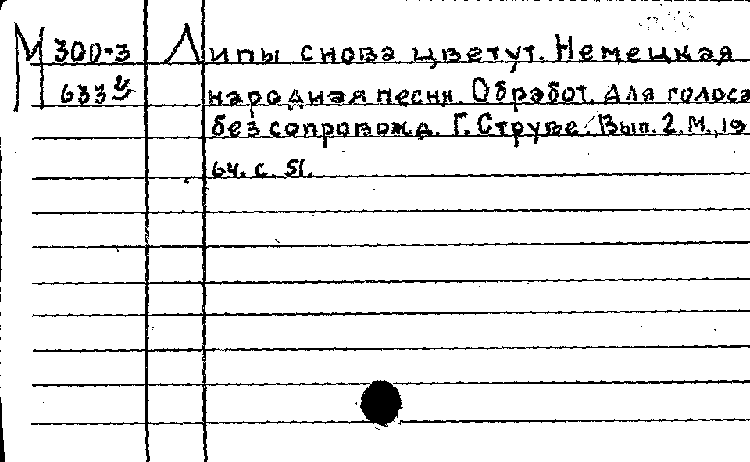 М 300-3 Липы снова цветут. Немецкая
633 народная песня. Обработ. для голоса
без сопровожд. Г. Струве. Вып. 2. М., 19
64. с. 51.